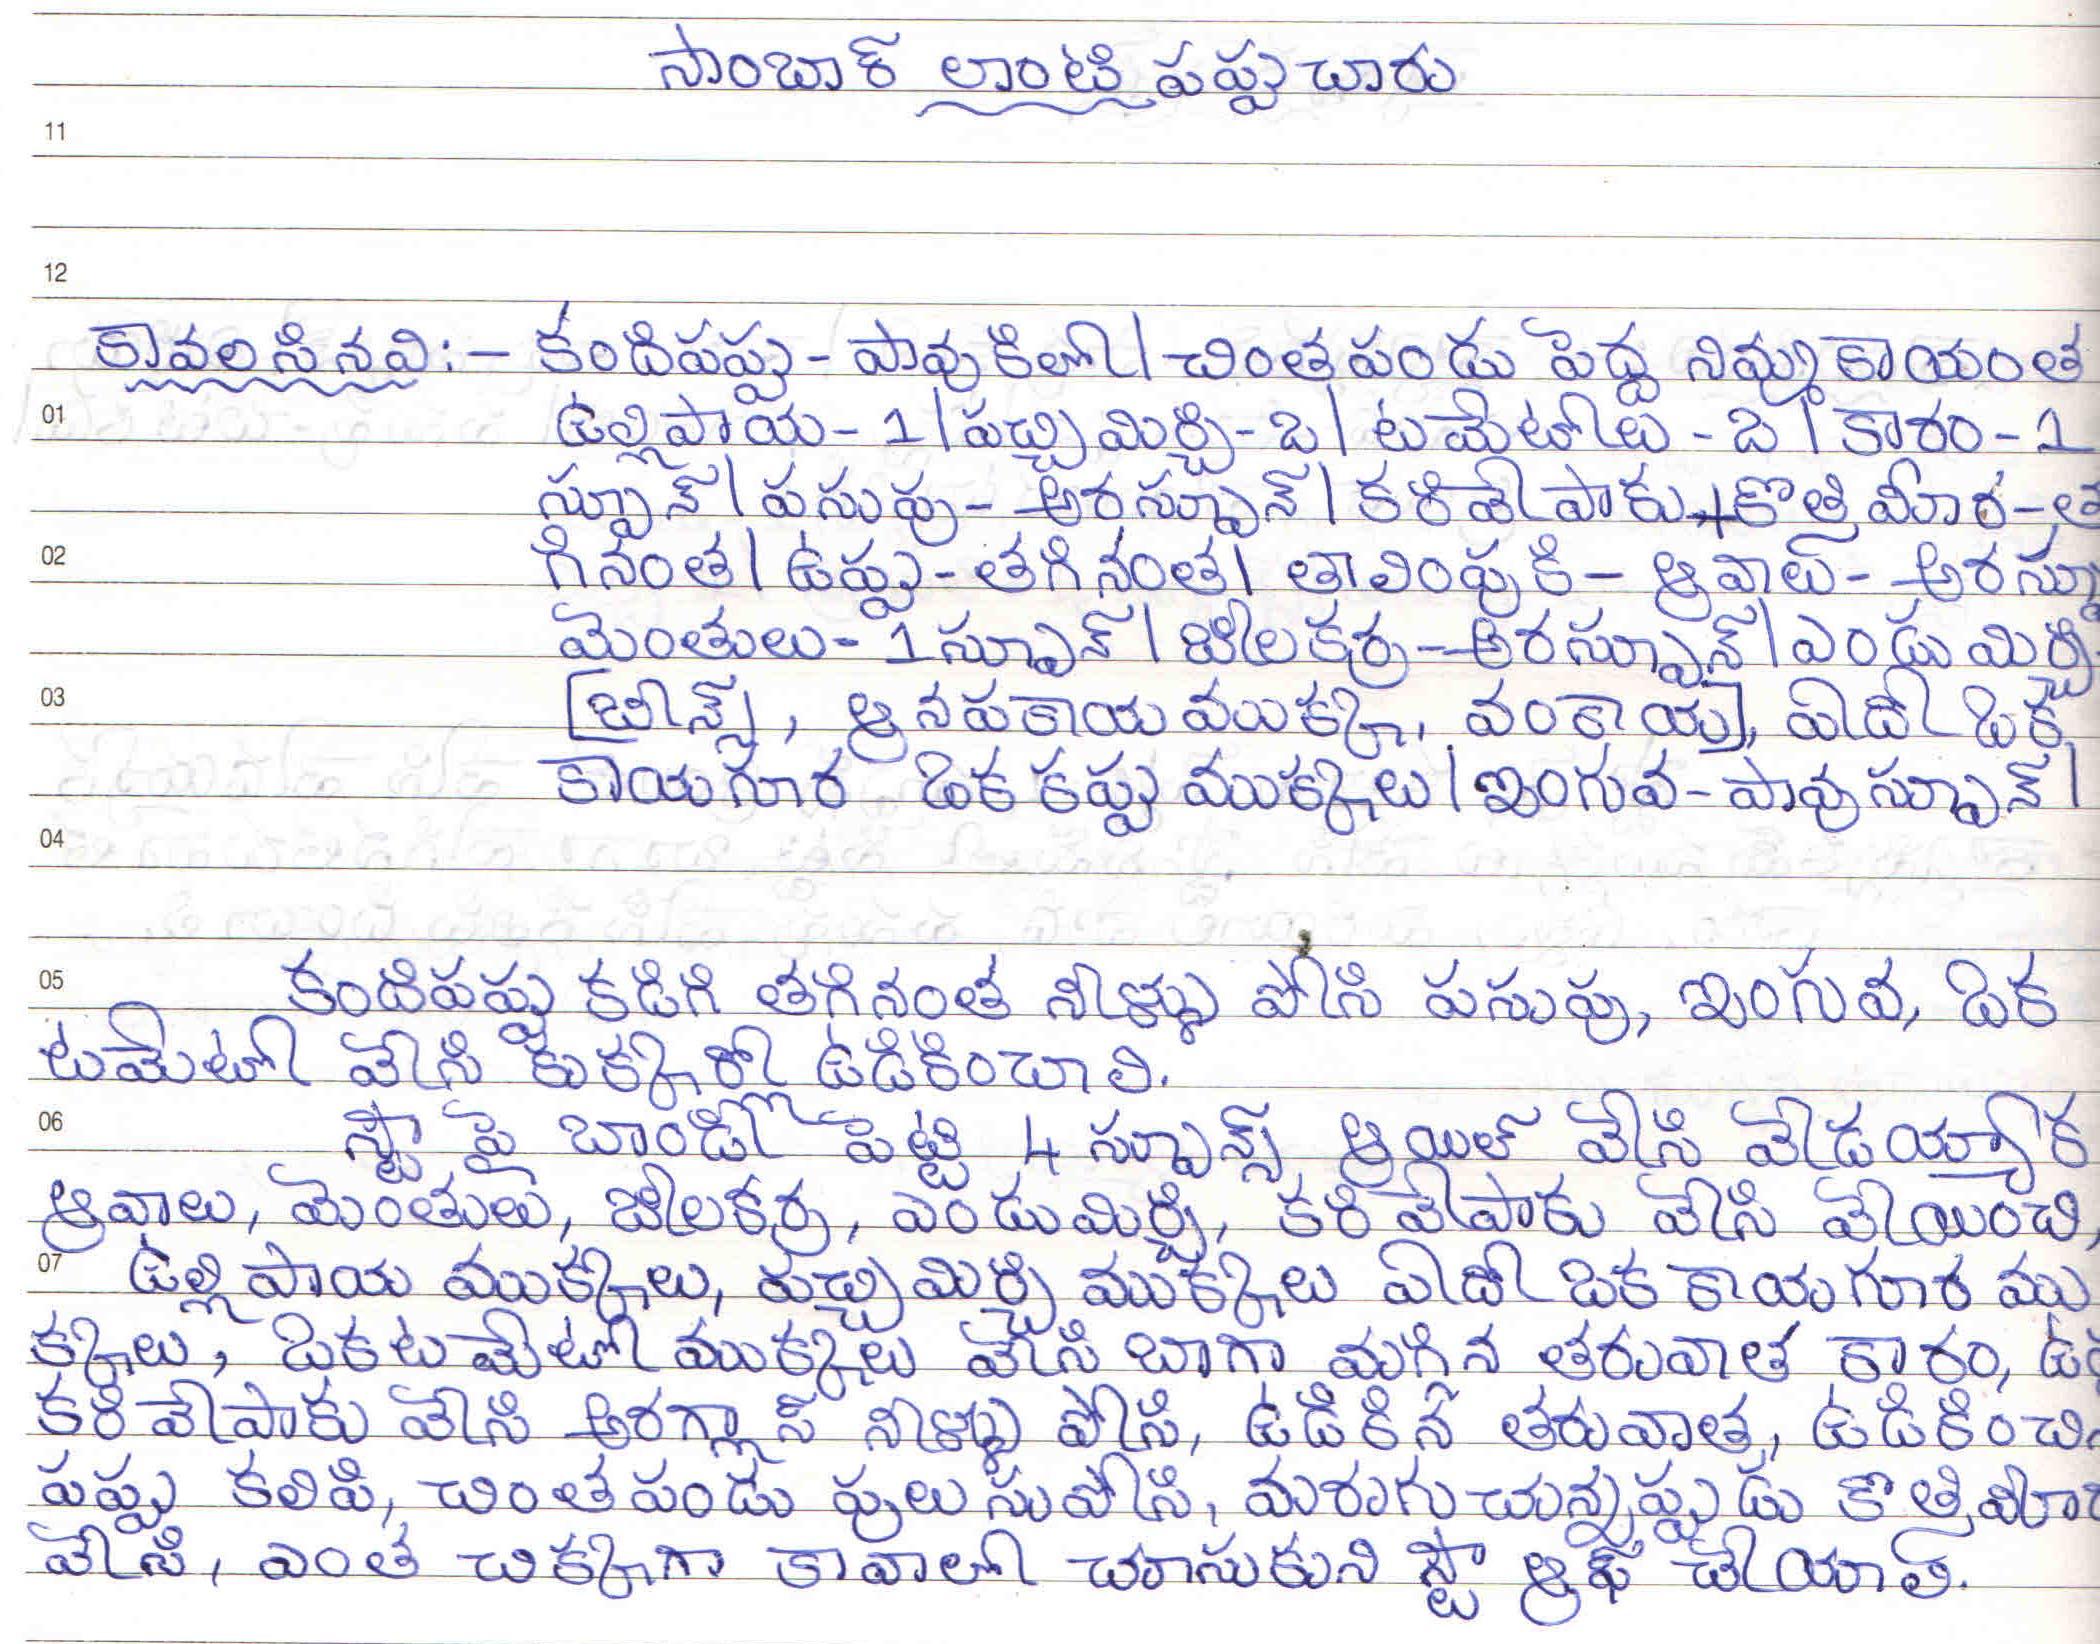 సాంబార్ లాంటి పప్పుచారు
11
12
కావలసినవి:- కందిపప్పు - పావుకిలో | చింతపండు పెద్ద నిమ్మకాయంత
01 ఉల్లిపాయ - 1 | పచ్చిమిర్చి - ఒ | టమేటోలు - ఒ | కారం - 1
స్పూన్ | పసుపు - అరస్పూన్ | కరివేపాకు + కొత్తిమీర - త
02 గినంత | ఉప్పు - తగినంత | తాలింపుకి - ఆవాల్ - అరస్పూ
మెంతులు - 1 స్పూన్ | జీలకర్ర - అరస్పూన్ | ఎండుమిర్చి
03 [బీన్స్, ఆనపకాయ ముక్క, వంకాయ], ఏదో ఒక
కాయగూర ఒక కప్పు ముక్కలు | ఇంగువ - పావు స్పూన్ |
04
05 కందిపప్పు కడిగి తగినంత నీళ్ళు పోసి పసుపు, ఇంగువ, ఒక
టమేటో వేసి కుక్కర్లో ఉడికించాలి.
06 స్టౌ పై బాండీ పెట్టి 4 స్పూన్స్ ఆయిల్ వేసి వేడయ్యాక
ఆవాలు, మెంతులు, జీలకర్ర, ఎండుమిర్చి, కరివేపాకు వేసి వేయించి,
07 ఉల్లిపాయ ముక్కలు, పచ్చిమిర్చి ముక్కలు ఏదో ఒక కాయగూర ము
క్కలు, ఒక టమేటో ముక్కలు వేసి బాగా మగ్గిన తరువాత కారం,
కరివేపాకు వేసి అరగ్లాస్ నీళ్ళు పోసి, ఉడికిన తరువాత, ఉడికించి
పప్పు కలిపి, చింతపండు పులుసుపోసి, మరుగుచున్నప్పుడు కొత్తిమీర
వేసి, ఎంత చిక్కగా కావాలో చూసుకుని స్టౌ ఆఫ్ చేయాలి.